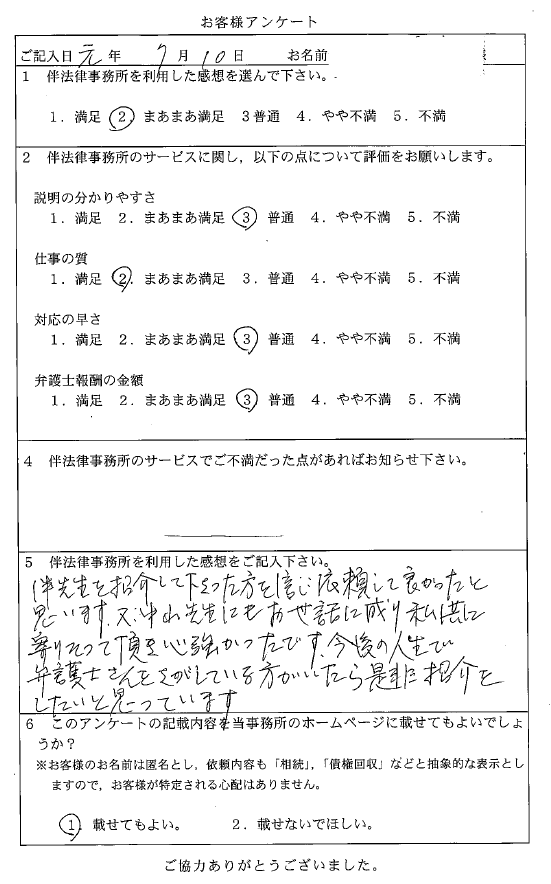 お客様アンケート
ご記入日 元 年 7 月 10 日 お名前
1 伴法律事務所を利用した感想を選んで下さい。
1．満足 2．まあまあ満足 3 普通 4．やや不満 5．不満
2 伴法律事務所のサービスに関し，以下の点について評価をお願いします。
説明の分かりやすさ
1．満足 2．まあまあ満足 3 普通 4．やや不満 5．不満
仕事の質
1．満足 2．まあまあ満足 3．普通 4．やや不満 5．不満
対応の早さ
1．満足 2．まあまあ満足 3 普通 4．やや不満 5．不満
弁護士報酬の金額
1．満足 2．まあまあ満足 3 普通 4．やや不満 5．不満
4 伴法律事務所のサービスでご不満だった点があればお知らせ下さい。
5 伴法律事務所を利用した感想をご記入下さい。
伴先生を紹介して下さった方を信じ依頼して良かったと
思います。又、中山先生にもお世話に成り私共に
寄りそって頂き心強かったです。今後の人生で
弁護士さんをさがしている方がいたら是非に紹介を
したいと思っています
6 このアンケートの記載内容を当事務所のホームページに載せてもよいでしょ
うか？
※お客様のお名前は匿名とし，依頼内容も「相続」，「債権回収」などと抽象的な表示とし
ますので，お客様が特定される心配はありません。
1．載せてもよい。 2．載せないでほしい。
ご協力ありがとうございました。